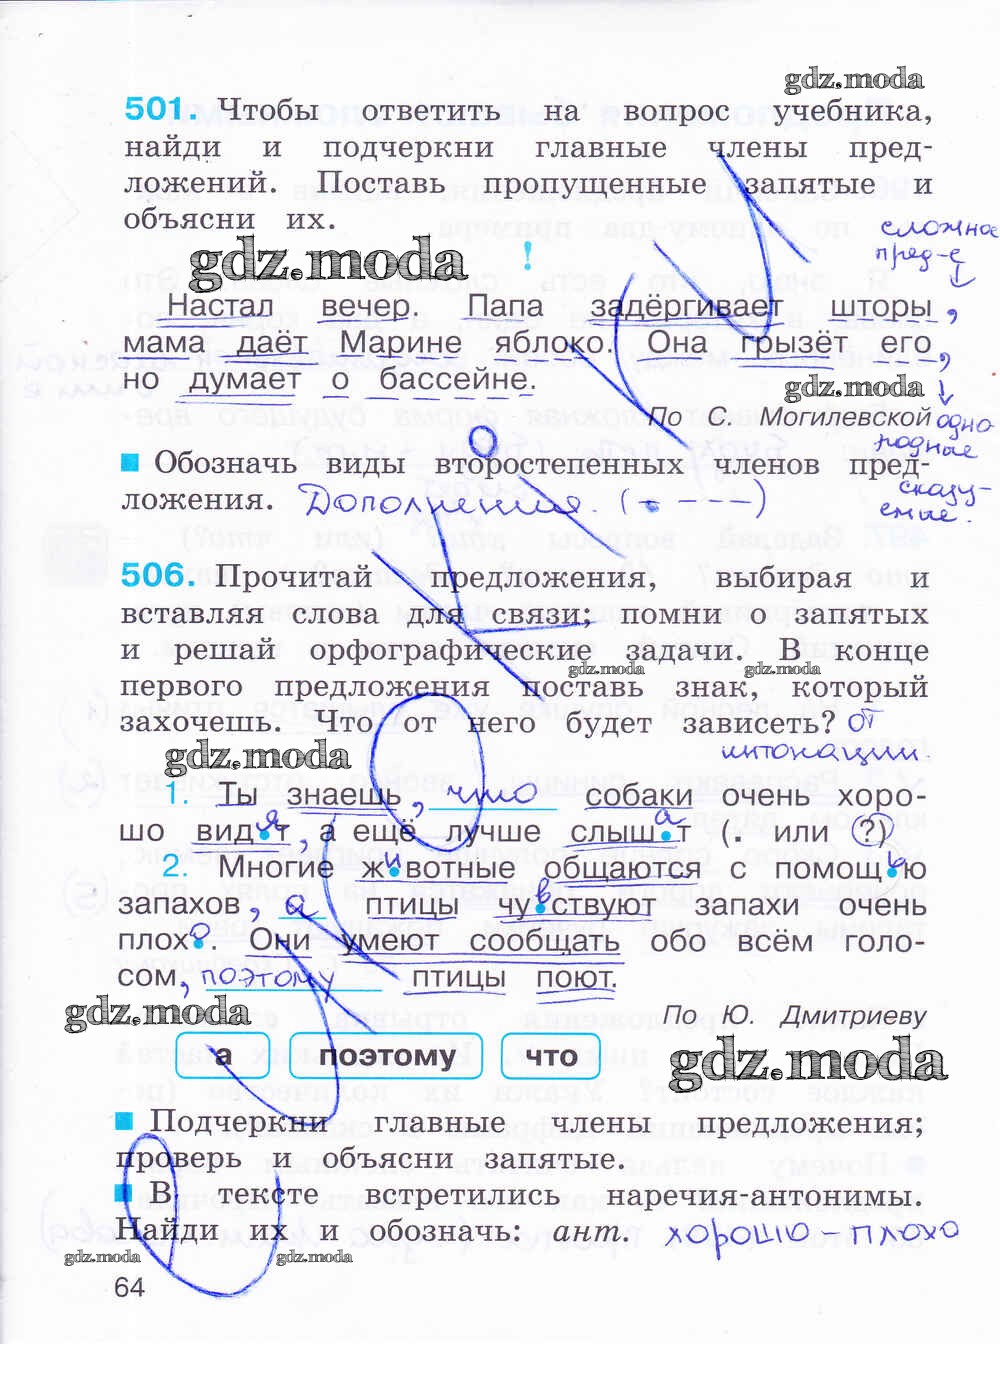 gdz.moda
501. Чтобы ответить на вопрос учебника,
найди и подчеркни главные члены пред-
ложений. Поставь пропущенные запятые и
объясни их.
сложное
пред-е
gdz.moda !
Настал вечер. Папа задёргивает шторы,
мама даёт Марине яблоко. Она грызёт его,
но думает о бассейне.
gdz.moda
По С. Могилевской
одно
родные
сказу-
емые.
Обозначь виды второстепенных членов пред-
ложения. Дополнения. (- - - -)
506. Прочитай предложения, выбирая и
вставляя слова для связи; помни о запятых
и решай орфографические задачи. В конце
gdz.moda gdz.moda
первого предложения поставь знак, который
захочешь. Что от него будет зависеть? от
интонации.
gdz.moda
1. Ты знаешь, что собаки очень хоро-
шо видят, а ещё лучше слышат (. или ?)
2. Многие животные общаются с помощью
запахов, а птицы чувствуют запахи очень
плохо. Они умеют сообщать обо всём голо-
сом, поэтому птицы поют.
gdz.moda
По Ю. Дмитриеву
а поэтому что
gdz.moda
Подчеркни главные члены предложения;
проверь и объясни запятые.
В тексте встретились наречия-антонимы.
Найди их и обозначь: ант. хорошо плохо
gdz.moda gdz.moda
64